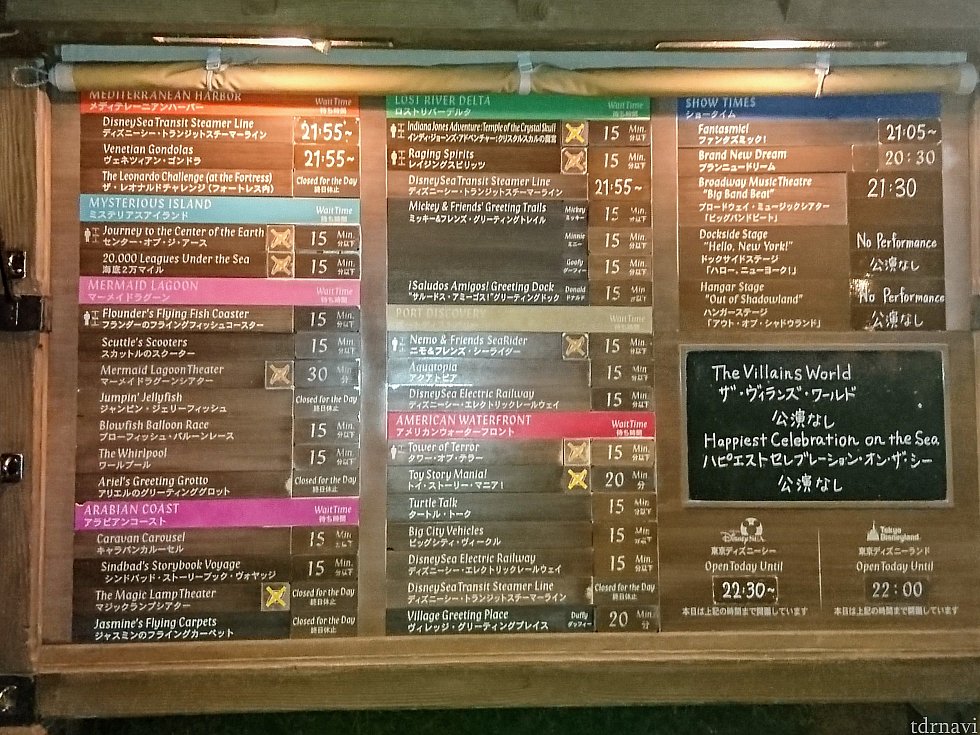 MEDITERRANEAN HARBOR Wait Time
メディテレーニアンハーバー 待ち時間
DisneySea Transit Steamer Line 21:55~
ディズニーシー・トランジットスチーマーライン
Venetian Gondolas 21:55~
ヴェネツィアン・ゴンドラ
The Leonardo Challenge (at the Fortress) Closed for the Day
ザ・レオナルドチャレンジ(フォートレス内) 終日休止
MYSTERIOUS ISLAND Wait Time
ミステリアスアイランド 待ち時間
Journey to the Center of the Earth 15 Min.
センター・オブ・ジ・アース 分以下
20,000 Leagues Under the Sea 15 Min.
海底2万マイル 分以下
MERMAID LAGOON Wait Time
マーメイドラグーン 待ち時間
Flounder's Flying Fish Coaster 15 Min.
フランダーのフライングフィッシュコースター 分以下
Scuttle's Scooters 15 Min.
スカットルのスクーター 分以下
Mermaid Lagoon Theater 30 Min.
マーメイドラグーンシアター 分
Jumpin' Jellyfish Closed for the Day
ジャンピン・ジェリーフィッシュ 終日休止
Blowfish Balloon Race 15 Min.
ブローフィッシュ・バルーンレース 分以下
The Whirlpool 15 Min.
ワールプール 分以下
Ariel's Greeting Grotto Closed for the Day
アリエルのグリーティンググロット 終日休止
ARABIAN COAST Wait Time
アラビアンコースト 待ち時間
Caravan Carousel 15 Min.
キャラバンカルーセル
Sindbad's Storybook Voyage 15 Min.
シンドバッド・ストーリーブック・ヴォヤッジ 分以下
The Magic Lamp Theater Closed for the Day
マジックランプシアター 終日休止
Jasmine's Flying Carpets Closed for the Day
ジャスミンのフライングカーペット 終日休止
LOST RIVER DELTA Wait Time
ロストリバーデルタ 待ち時間
Indiana Jones Adventure: Temple of the Crystal Skull 15 Min.
インディ・ジョーンズ・アドベンチャー:クリスタルスカルの魔宮 分以下
Raging Spirits 15 Min.
レイジングスピリッツ 分以下
DisneySea Transit Steamer Line 21:55~
ディズニーシー・トランジットスチーマーライン
Mickey & Friends' Greeting Trails Mickey 15 Min.
ミッキー&フレンズ・グリーティングトレイル ミッキー 分以下
Minnie 15 Min.
ミニー 分以下
Goofy 15 Min.
グーフィー 分以下
¡Saludos Amigos! Greeting Dock Donald 15 Min.
"サルードス・アミーゴス!"グリーティングドック ドナルド 分以下
PORT DISCOVERY Wait Time
ポートディスカバリー 待ち時間
Nemo & Friends SeaRider 15 Min.
ニモ&フレンズ・シーライダー 分以下
Aquatopia 15 Min.
アクアトピア 分以下
DisneySea Electric Railway 15 Min.
ディズニーシー・エレクトリックレールウェイ 分以下
AMERICAN WATERFRONT Wait Time
アメリカンウォーターフロント 待ち時間
Tower of Terror 15 Min.
タワー・オブ・テラー 分以下
Toy Story Mania! 20 Min.
トイ・ストーリー・マニア! 分
Turtle Talk 15 Min.
タートル・トーク 分以下
Big City Vehicles 15 Min.
ビッグシティ・ヴィークル 分以下
DisneySea Electric Railway 15 Min.
ディズニーシー・エレクトリックレールウェイ 分以下
DisneySea Transit Steamer Line Closed for the Day
ディズニーシー・トランジットスチーマーライン 終日休止
Village Greeting Place Duffy 20 Min.
ヴィレッジ・グリーティングプレイス ダッフィー 分
SHOW TIMES
ショータイム
Fantasmic! 21:05~
ファンタズミック!
Brand New Dream 20:30
ブランニュードリーム
Broadway Music Theatre 21:30
"Big Band Beat"
ブロードウェイ・ミュージックシアター
「ビッグバンドビート」
Dockside Stage No Performance
"Hello, New York!"
ドックサイドステージ 公演なし
「ハロー、ニューヨーク!」
Hangar Stage No Performance
"Out of Shadowland"
ハンガーステージ 公演なし
「アウト・オブ・シャドウランド」
The Villains World
ザ・ヴィランズ・ワールド
公演なし
Happiest Celebration on the Sea
ハピエストセレブレーション・オン・ザ・シー
公演なし
DisneySEA Tokyo Disneyland
東京ディズニーシー 東京ディズニーランド
Open Today Until Open Today Until
22:30~ 22:00
本日は上記の時間まで開園しています 本日は上記の時間まで開園しています
tdrnavi